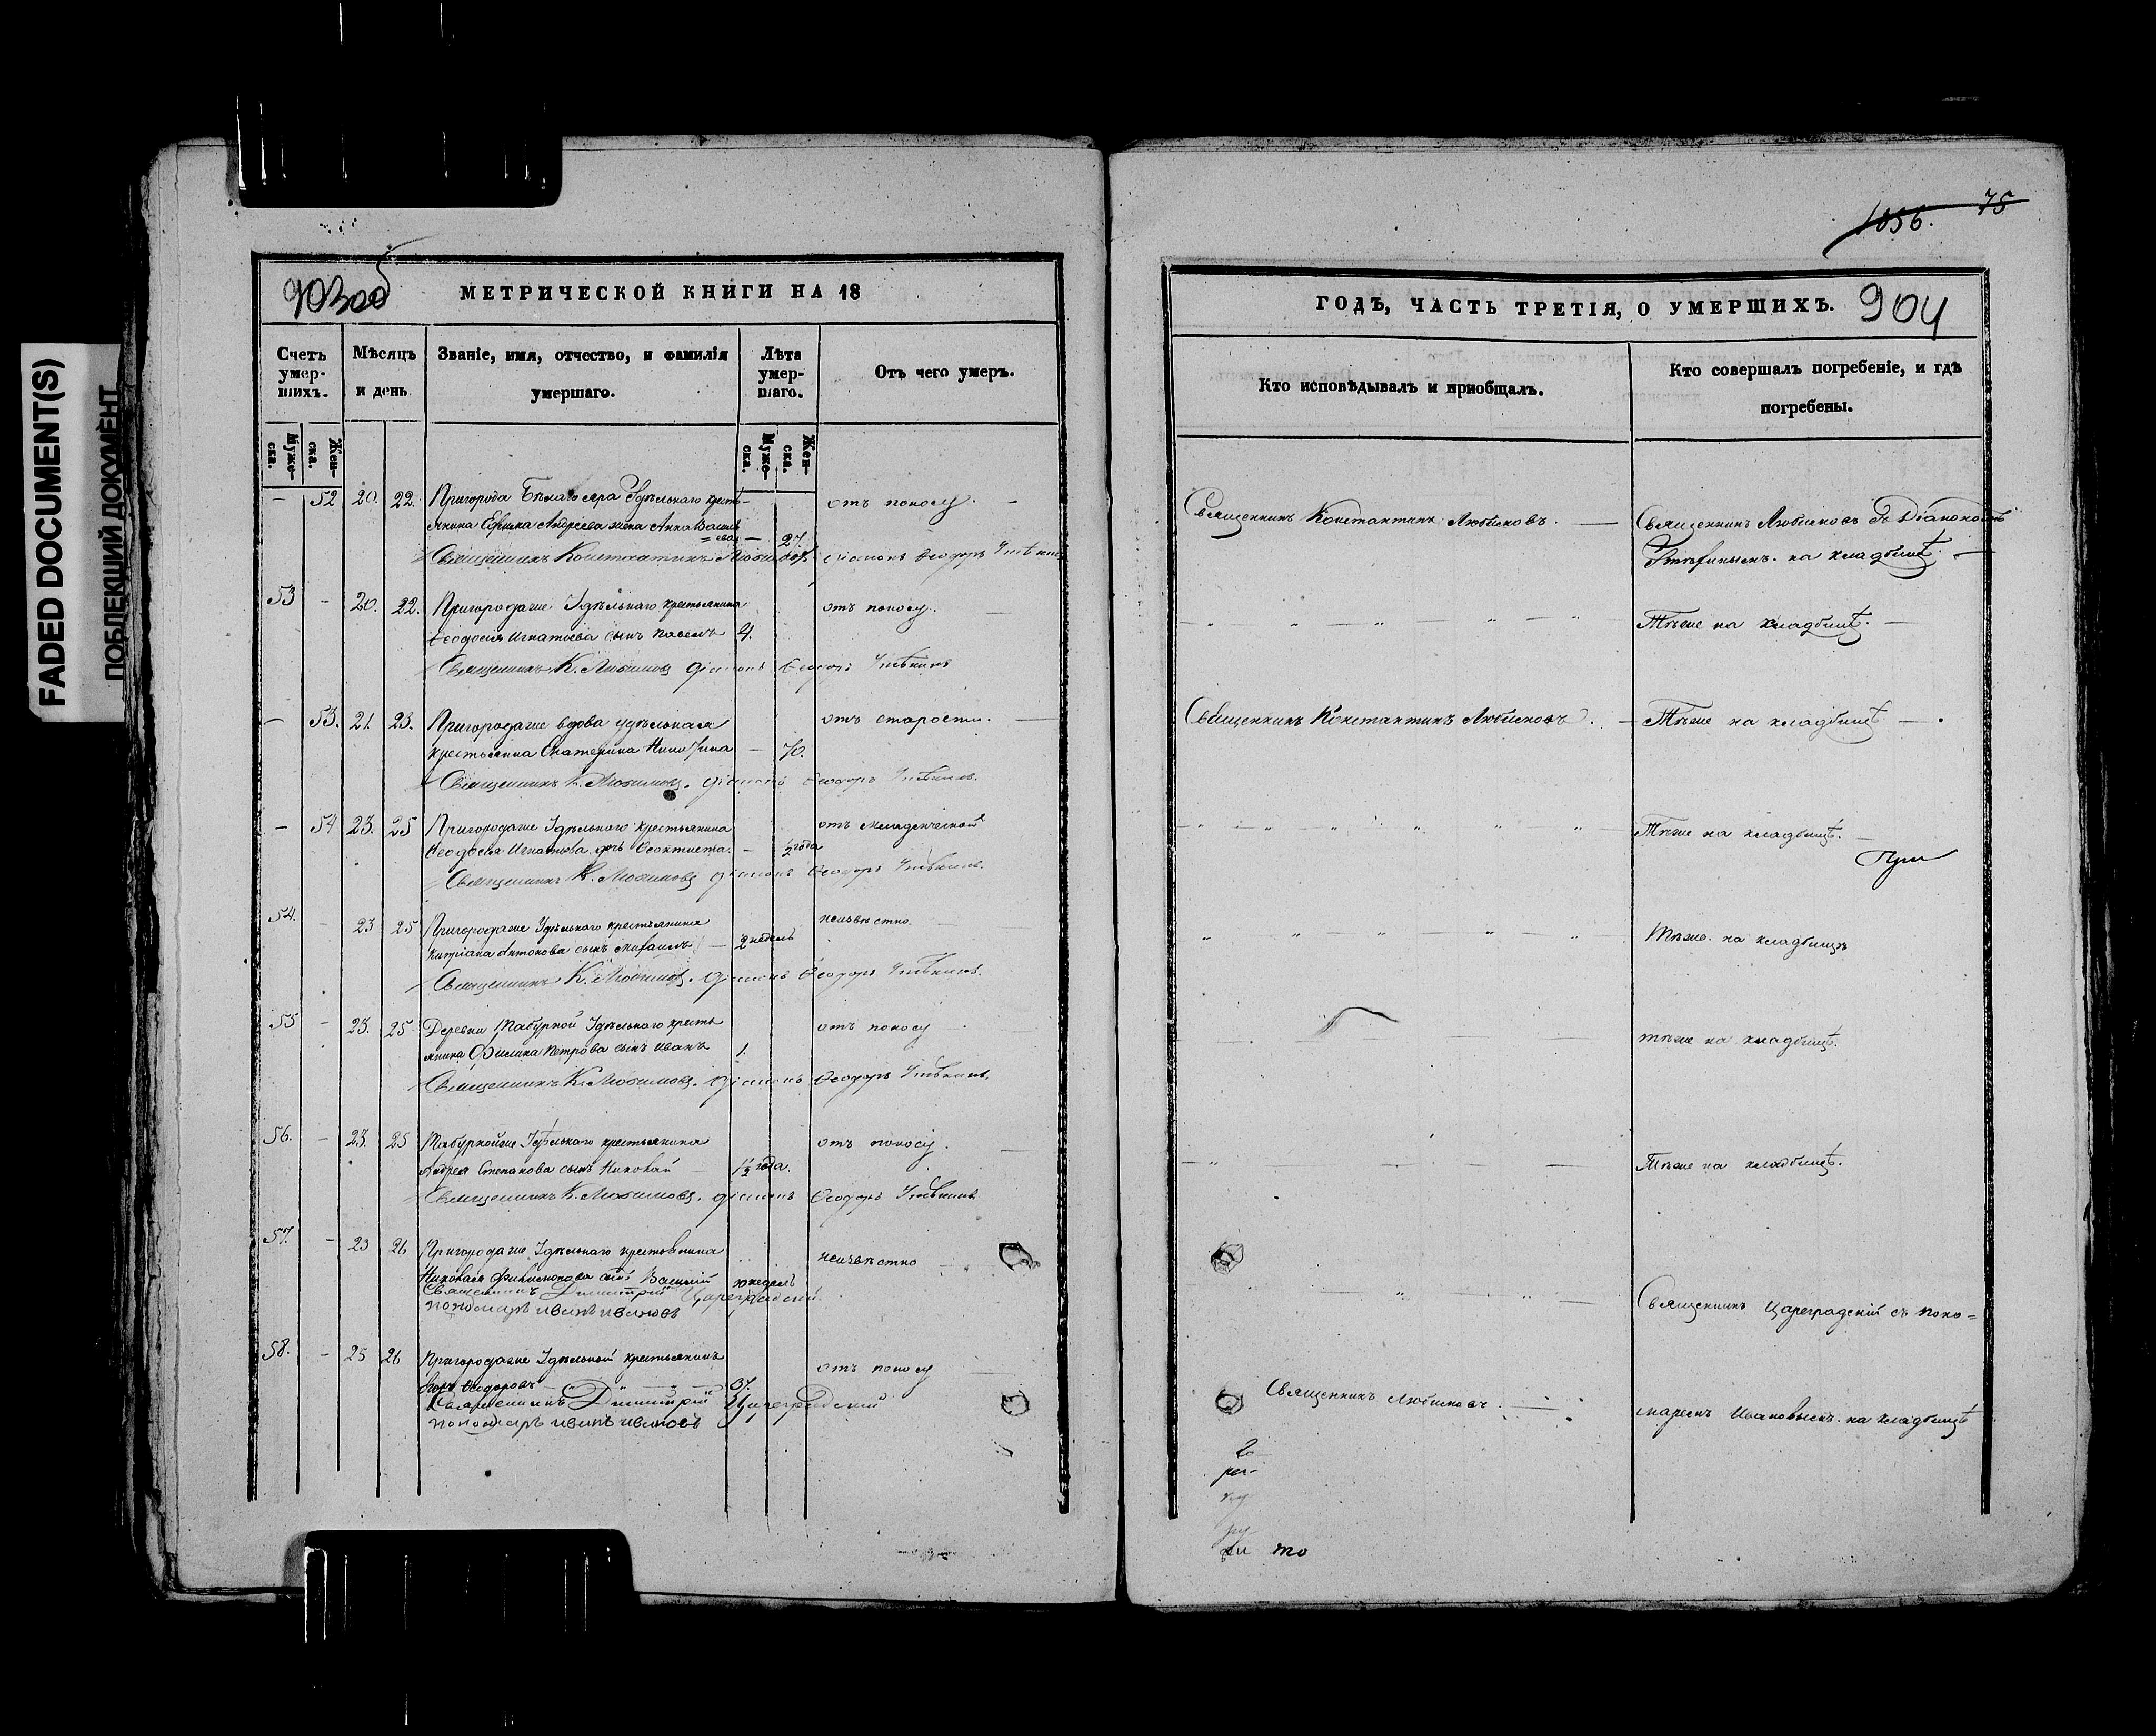 FADED DOCUMENT(S)
ПОБЛЕКШИЙ ДОКУМЕНТ
903об
МЕТРИЧЕСКОЙ КНИГИ НА 18
Счетъ умер-шихъ.
Мѣсяцъ и день
Званіе, имя, отчество, и фамилія умершаго.
Лѣта умер-шаго.
Отъ чего умеръ.
Муже-ска. Жен-ска.
Муже-ска. Жен-ска.
— 52 20. 22. Пригорода Бѣлаго яра Удѣльнаго кресть- отъ поносу. —
янина Ефима Андреева жена Анна Василь
=ева — 27.
Священникъ Константинъ Любимовъ діаконъ Ѳеодоръ
53 — 20. 22. Пригородаже Удѣльнаго крестьянина отъ поносу.
Ѳеодосія Игнатьева сынъ Павелъ 4.
Священникъ К. Любимовъ діаконъ Ѳеодоръ
— 53. 21. 23. Пригородаже вдова удѣльная отъ старости.
крестьянка Екатерина — 70.
Священникъ К. Любимовъ. діаконъ Ѳеодоръ
— 54 23. 25 Пригородаже Удѣльного крестьянина отъ младенческой
Ѳеодосія Игнатьева дочь Ѳеоктиста. — ½ года
Священникъ К. Любимовъ діаконъ Ѳеодоръ
54. — 23 25 Пригородаже Удѣльнаго крестьянина неизвѣстно
Кипріана Антонова сынъ Михаилъ — 2 недель
Священникъ К. Любимовъ. діаконъ Ѳеодоръ
55 — 23. 25 Деревни Удѣльнаго кресть отъ поносу
янина Филипа Петрова сынъ Иванъ 1.
Священникъ К. Любимовъ. діаконъ Ѳеодоръ
56. — 23. 25 Удѣльнаго крестьянина отъ поносу.
Андрея Степанова сынъ Николай 1½ года.
Священникъ К. Любимовъ. діаконъ Ѳеодоръ
57. — 23 26 Пригородаже Удѣльнаго крестьянина неизвѣстно
Николая Филимонова сынъ Василій недель
Священникъ Димитрій Цареградскій.
пономарь Иванъ Ивановъ
58. — 25 26 Пригородаже Удѣльной крестьянинъ отъ поносу
Ѳеодоровъ
Священникъ Димитрій Цареградскій
пономарь Иванъ Ивановъ
1856. 75
ГОДЪ, ЧАСТЬ ТРЕТІЯ, О УМЕРШИХЪ. 904
Кто исповѣдывалъ и приобщалъ.
Кто совершалъ погребеніе, и гдѣ погребены.
Священникъ Константинъ Любимовъ. — Священникъ Любимовъ съ Діакономъ
на кладбищѣ. —
Тѣже на кладбищѣ. —
Священникъ Константинъ Любимовъ. — Тѣже на кладбищѣ — .
Тѣже на кладбищѣ.
Тѣже. на кладбищѣ
тѣже на кладбищѣ.
Тѣже на кладбищѣ.
Священникъ Цареградскій съ поно=
Священникъ Любимовъ.
маремъ Ивановымъ. на кладбищѣ
то